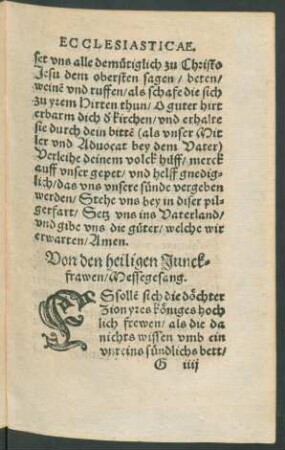 ECCLESIASTICAE.
set vns alle demütiglich zu Christo
Jesu dem obersten sagen/ beten/
weinē vnd ruffen/als schafe die sich
zu yrem Hirten thun/ O guter hirt
erbarm dich ð kirchen/ vnd erhalte
sie durch dein bittē (als vnser Mit
ler vnd Aduocat bey dem Vater)
Verleihe deinem volck hüff/ merck
auff vnser gepet/ vnd helff gnedig-
lich/das vns vnsere sünde vergeben
werden/ Stehe vns bey in diser pil-
gerfart/ Setz vns ins Vaterland/
vnd gibe vns die güter/ welche wir
erwarten/Amen.
Von den heiligen Junck-
frawen/Messegesang.
ES sollē sich die döchter
Zion yres königes hoch
lich frewen/ als die da
nichts wissen vmb ein
vnreins sündlichs bett/
G iiij